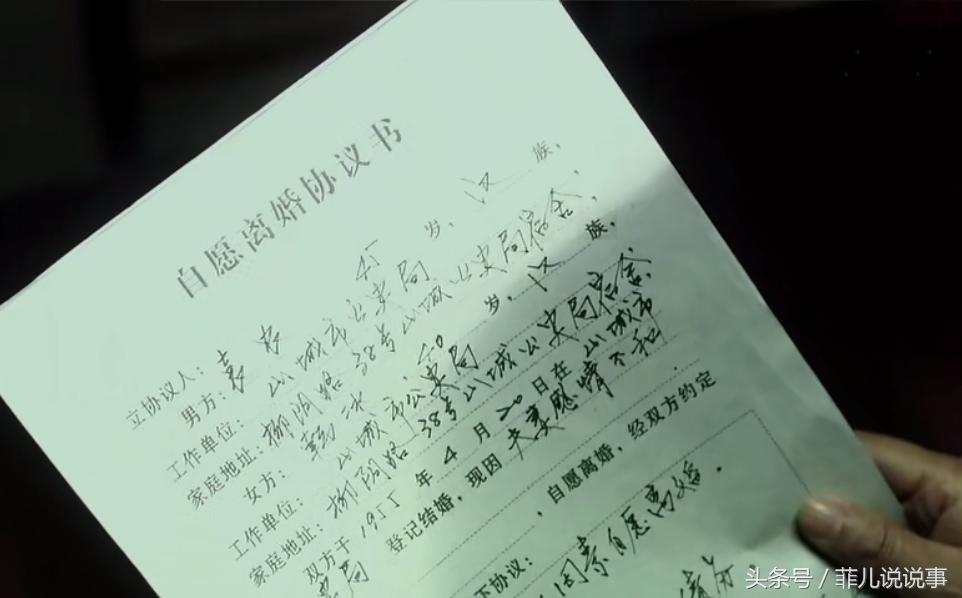 自愿离婚协议书
立协议人：
男方：袁农 45 岁，汉 族，
工作单位：山城市公安局
家庭地址：柳阴路38号山城公安局宿舍，
女方：韩冰 40 岁，汉 族，
工作单位：山城市公安局
家庭地址：柳阴路38号山城公安局宿舍，
双方于19 年4月20日在山城市
安局 登记结婚，现因夫妻感情不和
，自愿离婚，经双方约定
下协议：
因素自愿离婚．
头条号／菲儿说说事